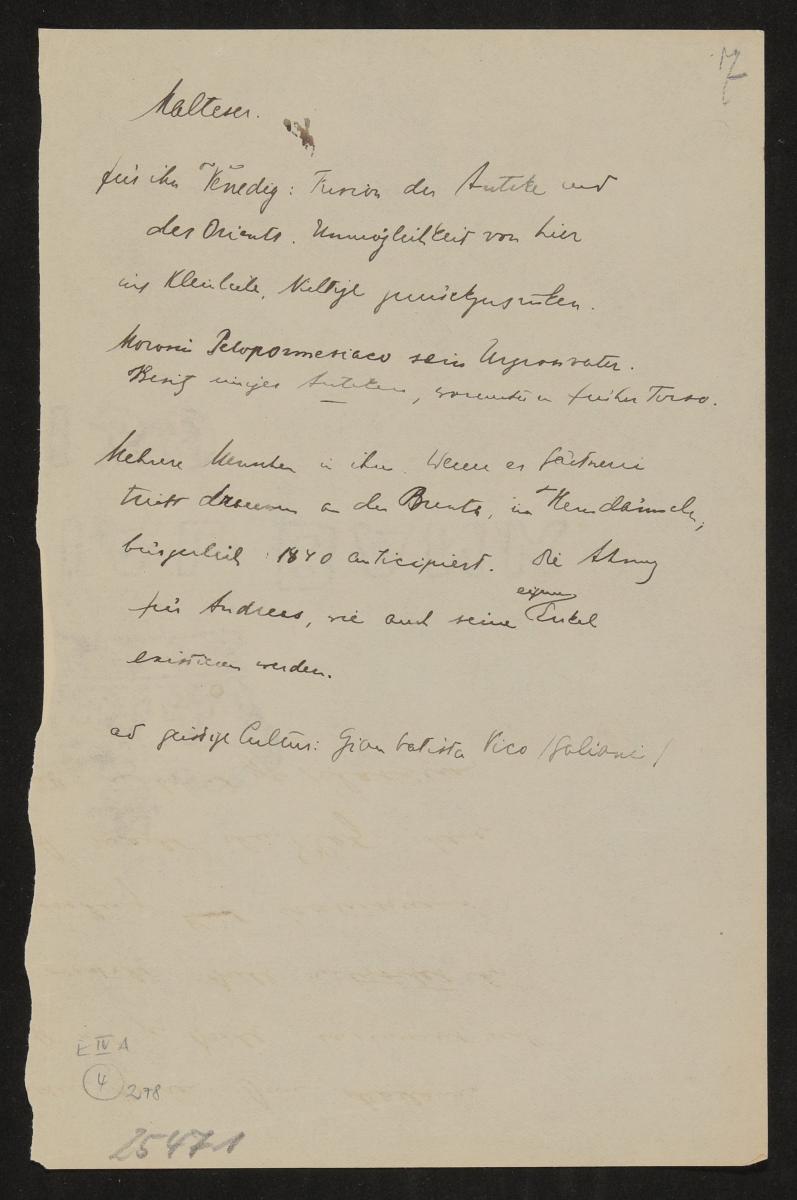 17
Malteser.
für ihn Venedig: Fusion der Antike und
des Orients. Unmöglichkeit von hier
ins Kleinliche, Nichtige zurückzusinken.
Morosini Peloponnesiaco sein Urgrossvater.
Besitz einiger Antiken, worunter ein früher Torso.
Mehrere Menschen in ihm. Wenn er Gärtnerei
treibt draussen an der Brenta, in Hemdärmeln,
bürgerlich: 1840 anticipiert. Die Ahnung
für Andreas, wie auch seine
eigenen
Enkel
existieren werden.
ad geistige Cultur: Gian batista Vico /Galiani/
E IV A
4
278
25471